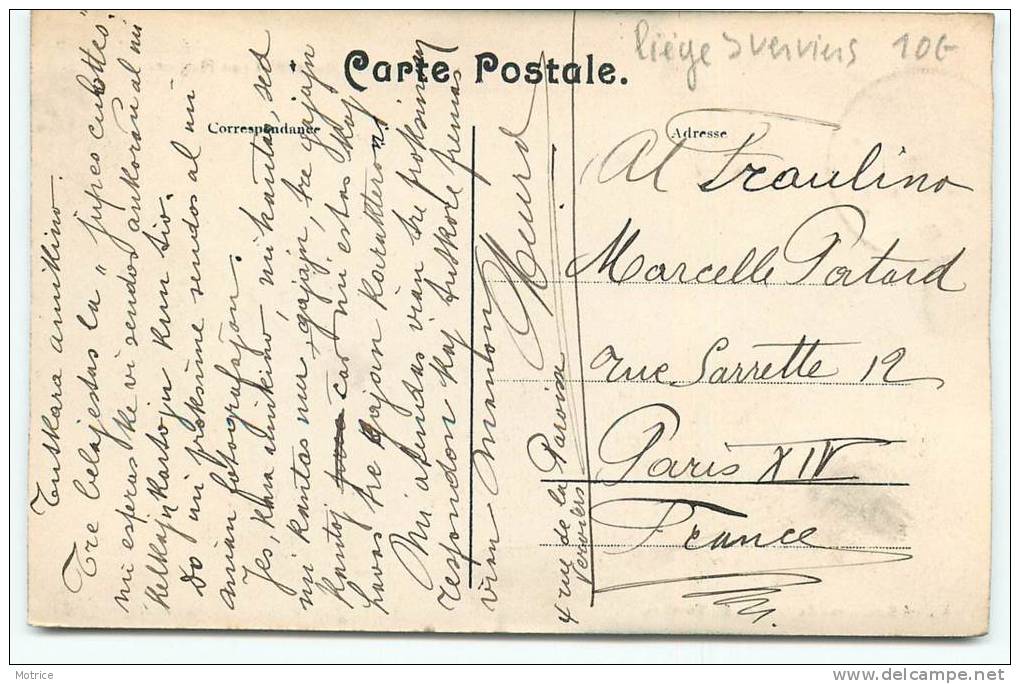 Liége Verviers 10€
Carte Postale.
Correspondance
Adresse
Tuskara amikino.
Tre belajestas la "jupes culottes."
mi esperas ke vi sendos ankoraŭ al mi
kelkajn kartojn kun tio.
Do mi proksime sendos al vi
mian fotografajon.
Jes, kara amikino, mi kantas, sed
mi kantas nur gajajn, tre gajajn
kantoj car mi estas kaj
havas tre gajan karakteron
Mi atendas vian tre proksiman
respondon kaj tuskore premas
vian manton
4 rue de la Paroisse
Verviers
Al Fraulino
Marcelle Potard
rue Sarrette 12
Paris XIV
France
Motrice
delcampe.net